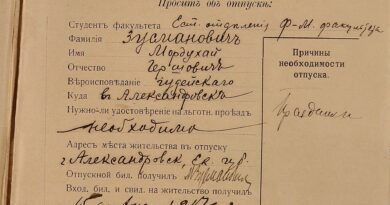 Проситъ объ отпускѣ:
Студент факультета Ест. отдѣленія Ф-М. факультета
Фамилія Зусмановичъ
Имя Мордухай
Отчество Гершовичъ
Вѣроисповѣданіе іудейскаго
Куда въ Александровскъ
Нужно-ли удостовѣреніе на льготн. проѣзд
необходимо
Адрес мѣста жительства в отпуску
г. Александровск, Ек. губ.
Отпускной бил. получил
Вход. бил. и свид. на жительство получил
Причины
необходимости
отпуска.
Праздники